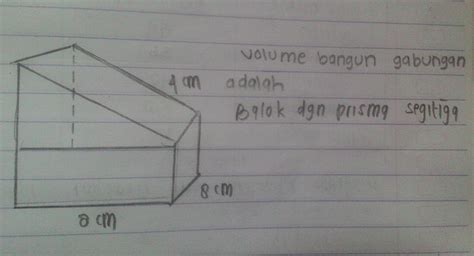 Volume bangun gabungan
4 cm adalah
Balok dgn prisma segitiga
8 cm
8 cm